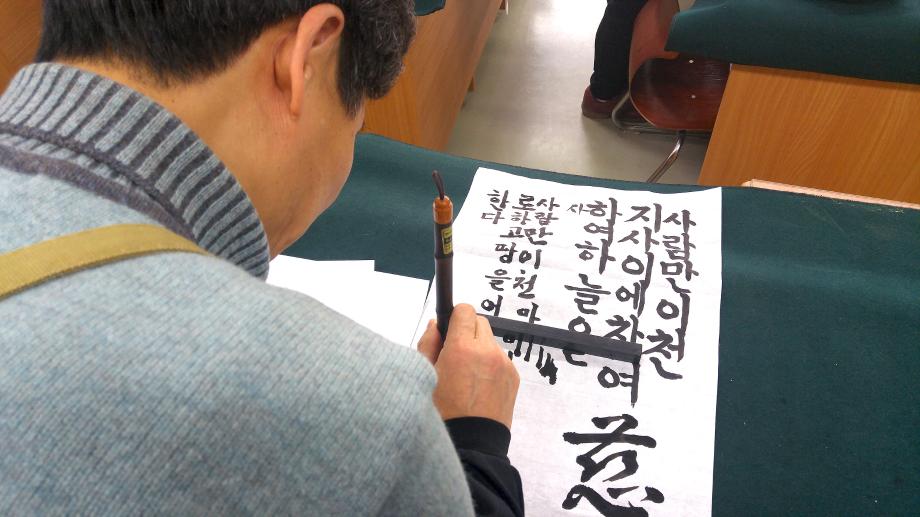 사람만이천
지사이에참여
하여하늘은
사
사람만이천
로하고땅을어
한다
慈